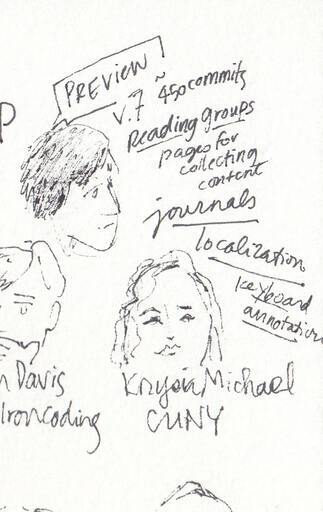 PREVIEW
v.7 ~ 450 commits
Reading groups
pages for
collecting
content
journals
localization
keyboard
annotation
P
Davis
Ironcoding
Michael
CUNY